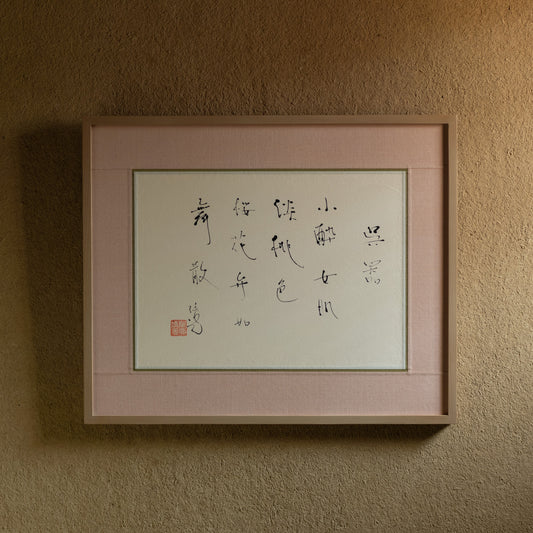 呉器
小酔女肌
緋桃色
桜花弁如
舞散